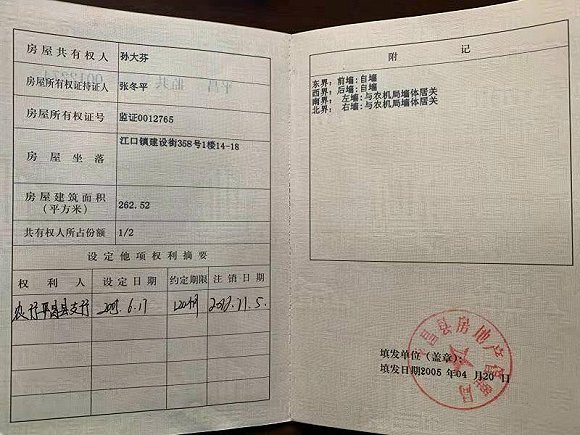 房屋共有权人 孙大芬
房屋所有权证持证人 张冬平
房屋所有权证号 监证0012765
房屋坐落 江口镇建设街358号1楼14-18
房屋建筑面积
(平方米) 262.52
共有权人所占份额 1/2
设定他项权利摘要
权利人 设定日期 约定期限 注销日期
农行平昌县支行 6.17 11.5.
附记
东界：前墙：自墙
西界：后墙：自墙
南界：左墙：与农机局墙体居关
北界：右墙：与农机局墙体居关
昌县房地产管理局
填发单位（盖章）：
填发日期2005 年04 月20 日